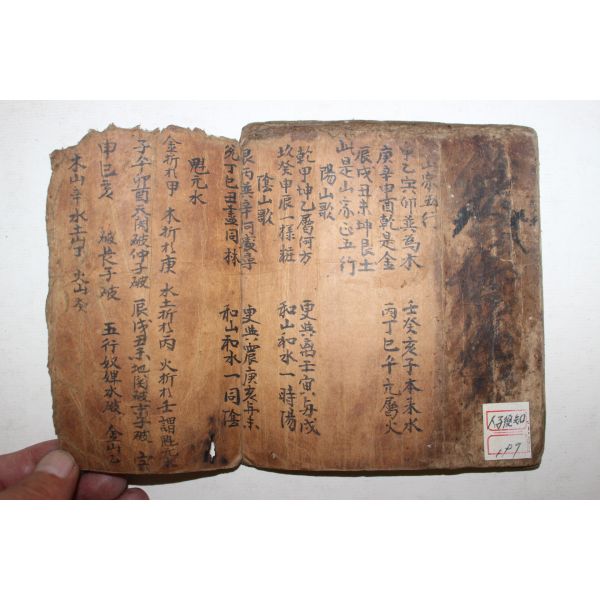 山家五行
甲乙寅卯巽為木 壬癸亥子本来水
庚辛申酉乾是金 丙丁巳午元屬火
辰戌丑未坤艮土
此是山家正五行
陽山歌
乾甲坤乙屬何方 更與离壬寅与戌
坎癸申辰一様粧 和山和水一時陽
陰山歌
艮丙並辛同 更與震庚亥与未
兊丁巳丑盡同林 和山和水一同陰
鬼元水
金折於甲 木折於庚 水土折於丙 火折於壬 謂鬼元水
子午卯酉天関破仲子破 辰戌丑未地関破季子破
申巳亥 破長子破 五行奴婢水破 金山乙
木山辛 水土山丁 火山癸
人子須知